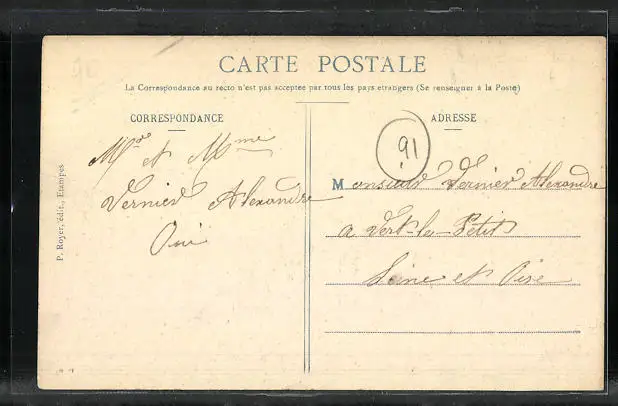 CARTE POSTALE
La Correspondance au recto n'est pas acceptée par tous les pays etrangers (Se renseigner à la Poste)
CORRESPONDANCE
Mr et Mme
Vernier Alexandre
Oui
P. Royer, édit., Etampes
ADRESSE
91
Monsieur Vernier Alexandre
a Vert-le-Petit
Seine et Oise